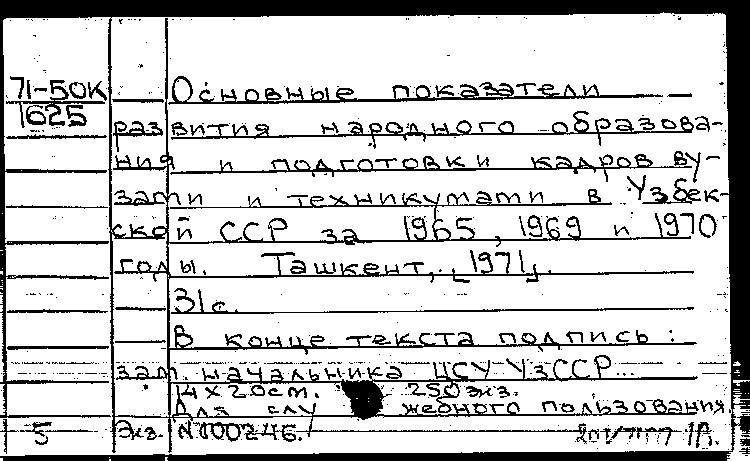 71-50К Основные показатели
1625
развития народного образова-
ния и подготовки кадров ву-
зами и техникумами в Узбек-
ской ССР за 1965, 1969 и 1970
годы. Ташкент, [1971].
31с.
В конце текста подпись:
зам. начальника ЦСУ УзССР...
14х20см. 250 экз.
Для служебного пользования.
5 Экз. №100246.